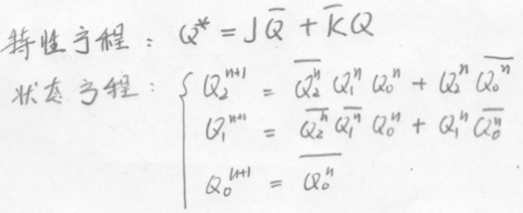 特性方程：Q* = J Q̅ + K̅ Q
状态方程：{ Q₂ⁿ⁺¹ = \overline{Q₂ⁿ} Q₁ⁿ Q₀ⁿ + Q₂ⁿ \overline{Q₀ⁿ}
Q₁ⁿ⁺¹ = \overline{Q₂ⁿ} \overline{Q₁ⁿ} Q₀ⁿ + Q₁ⁿ \overline{Q₀ⁿ}
Q₀ⁿ⁺¹ = \overline{Q₀ⁿ}